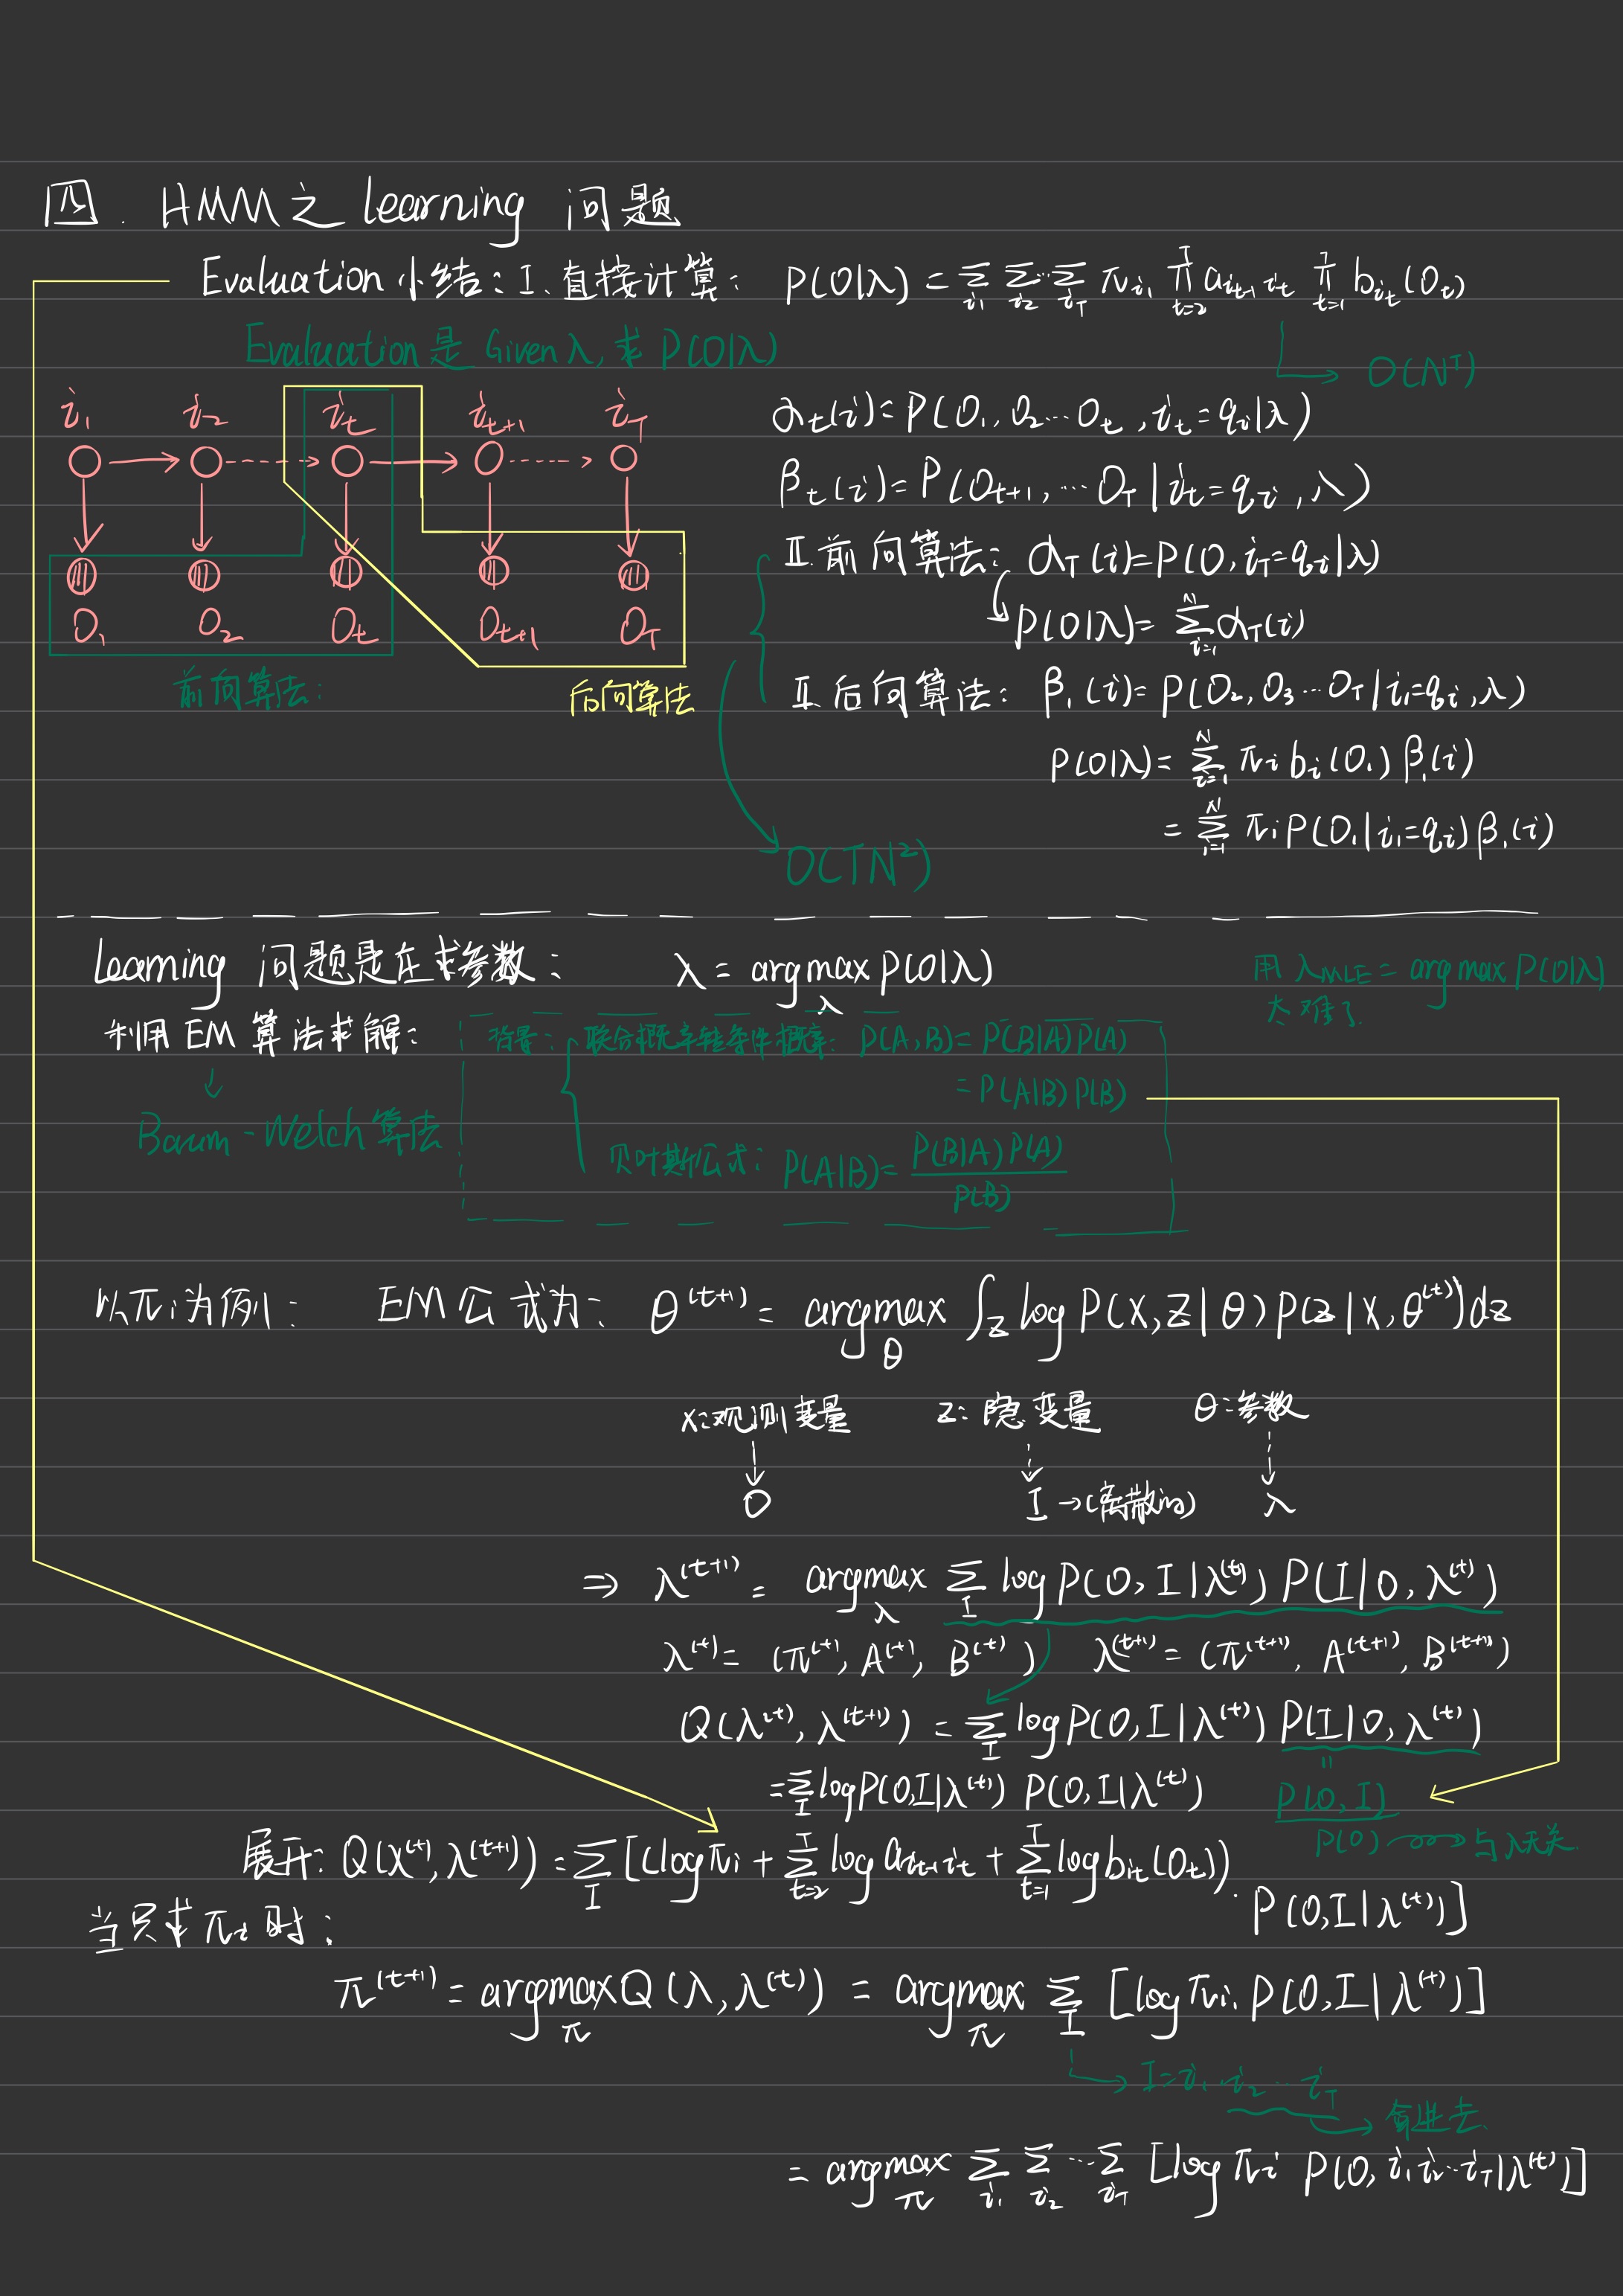 四. HMM之 learning 问题
Evaluation 小结: I. 直接计算: P(O|λ) = Σ_{i₁} Σ_{i₂} ⋯ Σ_{i_T} π_{i₁} ∏_{t=2}^{T} a_{i_{t-1} i_t} ∏_{t=1}^{T} b_{i_t}(O_t)
Evaluation 是 Given λ, 求 P(O|λ)
→ O(N^T)
i₁ i₂ i_t i_{t+1} i_T
O₁ O₂ O_t O_{t+1} O_T
前向算法:
后向算法
α_t(i) = P(O₁, O₂ ⋯ O_t, i_t = q_i | λ)
β_t(i) = P(O_{t+1}, ⋯ O_T | i_t = q_i, λ)
II. 前向算法: α_T(i) = P(O, i_T = q_i | λ)
P(O|λ) = Σ_{i=1}^{N} α_T(i)
II. 后向算法: β₁(i) = P(O₂, O₃ ⋯ O_T | i₁ = q_i, λ)
P(O|λ) = Σ_{i=1}^{N} π_i b_i(O₁) β₁(i)
= Σ_{i=1}^{N} π_i P(O₁ | i₁ = q_i) β₁(i)
O(TN²)
learning 问题是在求参数: λ = argmax_λ P(O|λ)
用 λ_MLE = argmax P(O|λ)
太难了.
利用 EM 算法求解:
Baum-Welch 算法
背景: 联合概率转条件概率: P(A,B) = P(B|A)P(A)
= P(A|B)P(B)
贝叶斯公式: P(A|B) = P(B|A)P(A) / P(B)
以π_i为例: EM公式为: θ^(t+1) = argmax_θ ∫_Z log P(X,Z|θ) P(Z|X,θ^(t)) dz
X: 观测变量 Z: 隐变量 θ: 参数
O I → (离散的) λ
⇒ λ^(t+1) = argmax_λ Σ_I log P(O,I|λ^(t)) P(I|O,λ^(t))
λ^(t) = (π^(t), A^(t), B^(t)) λ^(t+1) = (π^(t+1), A^(t+1), B^(t+1))
Q(λ^(t), λ^(t+1)) = Σ_I log P(O,I|λ^(t)) P(I|O,λ^(t))
= Σ_I log P(O,I|λ^(t)) P(O,I|λ^(t))
P(O,I) / P(O) → 与λ无关.
展开: Q(λ^(t), λ^(t+1)) = Σ_I [(log π_i + Σ_{t=2}^{T} log a_{i_{t-1} i_t} + Σ_{t=1}^{T} log b_{i_t}(O_t)).
P(O,I|λ^(t))]
当只求 π_i 时:
π^(t+1) = argmax_π Q(λ, λ^(t)) = argmax_π Σ_I [log π_{i₁} P(O,I|λ^(t))]
→ I = i₁, i₂ ⋯ i_T
→ 进去.
= argmax_π Σ_{i₁} Σ_{i₂} ⋯ Σ_{i_T} [log π_i P(O, i₁ i₂ ⋯ i_T | λ^(t))]